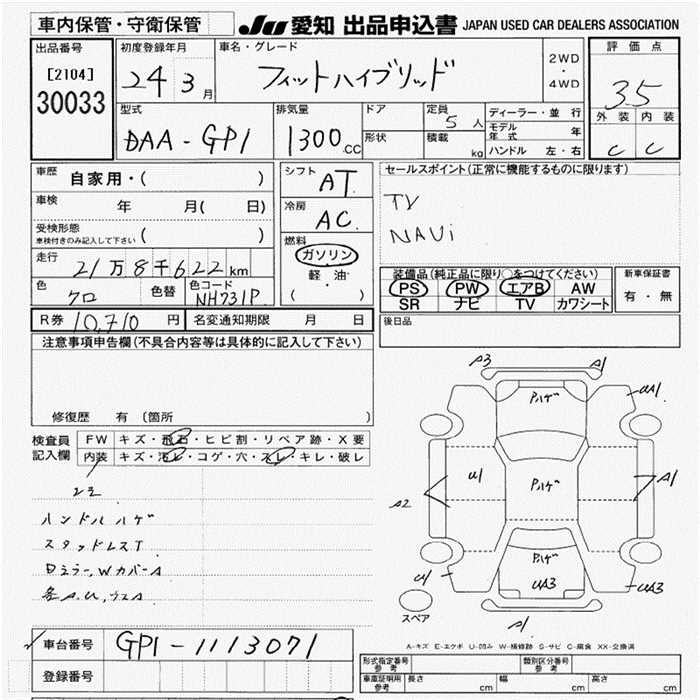 車内保管・守衛保管 JU愛知 出品申込書 JAPAN USED CAR DEALERS ASSOCIATION
出品番号 初度登録年月 車名・グレード 評価点
[2104] 24 3月 フィットハイブリッド 2WD・4WD 3.5
30033
型式 排気量 ドア 定員 5人 ディーラー・並行 外装 内装
DAA-GP1 1300CC 形状 積載 kg モデル年式 年 C C
ハンドル 左・右
車歴 自家用・( ) シフト AT セールスポイント(正常に機能するものに限ります)
車検 年 月( 日) 冷房 AC TV
受検形態 ( ) NAVi
車検付きのみ記入して下さい
燃料 ガソリン 軽油・ ( )
走行 21万8千622km 装備品(純正品に限り○をつけてください) 新車保証書
色 クロ 色替 色コード NH731P PS PW エアB AW 有・無
SR ナビ TV カワシート
R券 10,710円 名変通知期限 月 日 後日品
注意事項申告欄(不具合内容等は具体的に記入して下さい)
修復歴 有(箇所 )
検査員記入欄 FW キズ・飛石・ヒビ割・リペア跡・X要
内装 キズ・汚レ・コゲ・穴・スレ・キレ・破レ
ハンドルハゲ
スタッドレスT
DミラーWカバーA
A3 A1
Pハゲ UA1
U1 Pハゲ A1
A2
Pハゲ
U1 UA3 UA3
スペア A1
A-キズ E-エクボ U-凹み W-補修跡 S-サビ C-腐食 XX-交換済
車台番号 GP1-1113071
登録番号
形式指定番号 参考 類別区分番号 参考
車庫証明用 参考 長さ cm 幅 cm 高さ cm